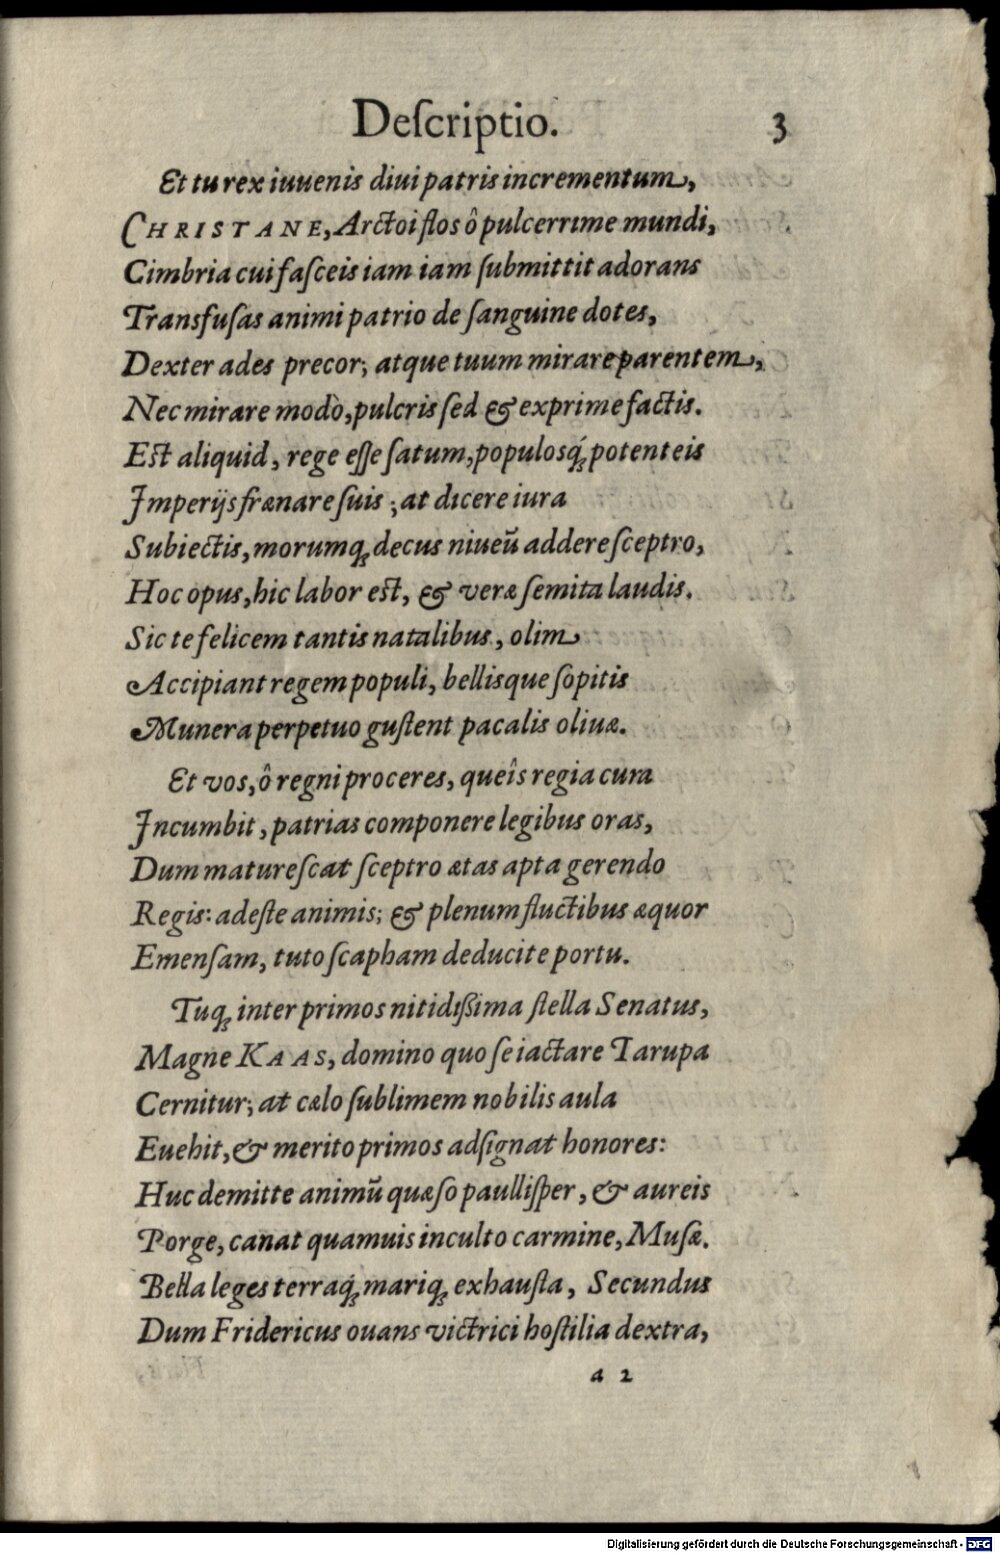 Deſcriptio. 3
Et tu rex iuuenis diui patris incrementum,
CHRISTANE, Arctoi flos ô pulcerrime mundi,
Cimbria cui faſceis iam iam ſubmittit adorans
Transfuſas animi patrio de ſanguine dotes,
Dexter ades precor; atque tuum mirare parentem,
Nec mirare modò, pulcris ſed & exprime factis.
Est aliquid, rege eſſe ſatum, populosq́; potenteis
Imperijs frænare ſuis ; at dicere iura
Subiectis, morumq; decus niueũ addere ſceptro,
Hoc opus, hic labor est, & veræ ſemita laudis.
Sic te felicem tantis natalibus, olim
Accipiant regem populi, bellisque ſopitis
Munera perpetuo guſtent pacalis oliuæ.
Et vos, ô regni proceres, queîs regia cura
Incumbit, patrias componere legibus oras,
Dum matureſcat ſceptro ætas apta gerendo
Regis: adeſte animis; & plenum fluctibus æquor
Emenſam, tuto ſcapham deducite portu.
Tuq; inter primos nitidißima ſtella Senatus,
Magne KAAS, domino quo ſe iactare Tarupa
Cernitur; at cælo ſublimem nobilis aula
Euehit, & merito primos adſignat honores:
Huc demitte animũ quæſo paulliſper, & aureis
Porge, canat quamuis inculto carmine, Muſæ.
Bella leges terraq́; mariq; exhauſta, Secundus
Dum Fridericus ouans victrici hoſtilia dextra,
a 2
Digitalisierung gefördert durch die Deutsche Forschungsgemeinschaft - DFG